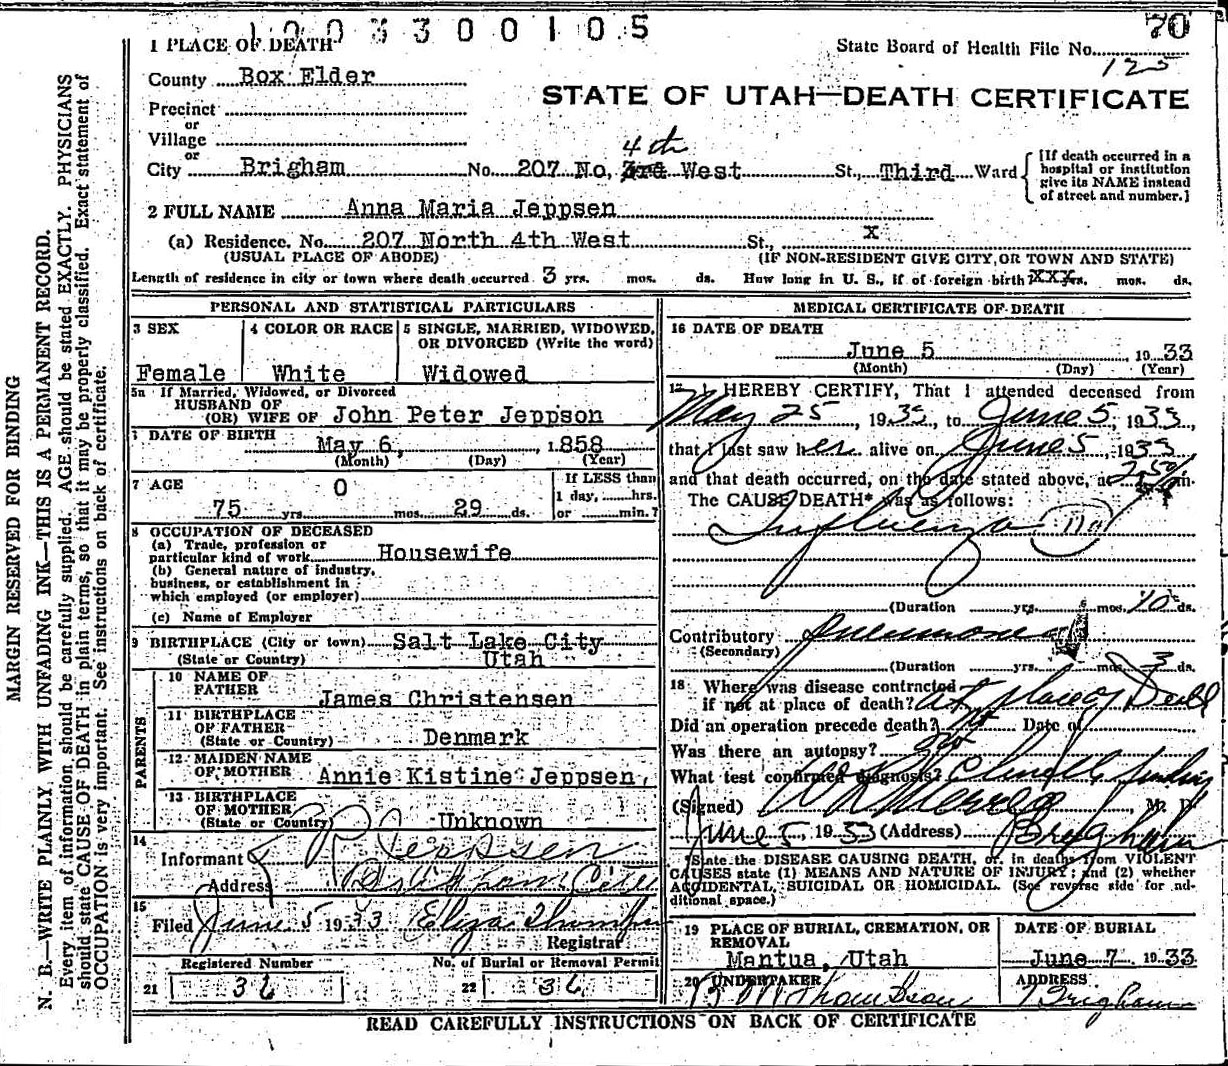 1003300105
70
1 PLACE OF DEATH
State Board of Health File No.
125
County Box Elder
STATE OF UTAH—DEATH CERTIFICATE
Precinct
or
Village
or
4th
City Brigham No. 207 No, 3rd West St., Third Ward
[If death occurred in a
hospital or institution
give its NAME instead
of street and number.]
2 FULL NAME Anna Maria Jeppsen
(a) Residence. No. 207 North 4th West St., X
(USUAL PLACE OF ABODE) (IF NON-RESIDENT GIVE CITY, OR TOWN AND STATE)
Length of residence in city or town where death occurred 3 yrs. mos. ds. How long in U. S., if of foreign birth xxx yrs. mos. ds.
PERSONAL AND STATISTICAL PARTICULARS
3 SEX
Female
4 COLOR OR RACE
White
5 SINGLE, MARRIED, WIDOWED,
OR DIVORCED (Write the word)
Widowed
5a If Married, Widowed, or Divorced
HUSBAND OF
(OR) WIFE OF John Peter Jeppson
DATE OF BIRTH
May 6, 1858
(Month) (Day) (Year)
7 AGE
75 yrs. 0 mos. 29 ds.
If LESS than
1 day, hrs.
or min.?
8 OCCUPATION OF DECEASED
(a) Trade, profession or
particular kind of work Housewife
(b) General nature of industry,
business, or establishment in
which employed (or employer)
(c) Name of Employer
9 BIRTHPLACE (City or town) Salt Lake City
(State or Country) Utah
PARENTS
10 NAME OF
FATHER
James Christensen
11 BIRTHPLACE
OF FATHER
(State or Country) Denmark
12 MAIDEN NAME
OF MOTHER Annie Kistine Jeppsen,
13 BIRTHPLACE
OF MOTHER
(State or Country) Unknown
14
Informant Jeppsen
Address Brigham City
15
Filed June 5 1933 Eliza
Registrar
Registered Number No. of Burial or Removal Permit
21 36 22 36
MEDICAL CERTIFICATE OF DEATH
16 DATE OF DEATH
June 5 1933
(Month) (Day) (Year)
17 I HEREBY CERTIFY, That I attended deceased from
May 25, 1933, to June 5, 1933,
that I last saw her alive on June 5, 1933
and that death occurred, on the date stated above, at 2:50 m.
The CAUSE DEATH* was as follows:
Influenza 11a
(Duration yrs. mos. 10 ds.
Contributory Pneumonia
(Secondary)
(Duration yrs. mos. 3 ds.
18 Where was disease contracted
if not at place of death? at place of Death
Did an operation precede death? Date of
Was there an autopsy?
What test confirmed diagnosis?
(Signed) M. D.
June 5, 1933 (Address) Brigham
*State the DISEASE CAUSING DEATH, or, in deaths from VIOLENT
CAUSES state (1) MEANS AND NATURE OF INJURY; and (2) whether
ACCIDENTAL, SUICIDAL OR HOMICIDAL. (See reverse side for ad-
ditional space.)
19 PLACE OF BURIAL, CREMATION, OR
REMOVAL
Mantua, Utah
DATE OF BURIAL
June 7 1933
20 UNDERTAKER
Thompson
ADDRESS
Brigham
READ CAREFULLY INSTRUCTIONS ON BACK OF CERTIFICATE
MARGIN RESERVED FOR BINDING
N. B.—WRITE PLAINLY, WITH UNFADING INK—THIS IS A PERMANENT RECORD.
Every item of information should be carefully supplied. AGE should be stated EXACTLY. PHYSICIANS
should state CAUSE OF DEATH in plain terms, so that it may be properly classified. Exact statement of
OCCUPATION is very important. See instructions on back of certificate.